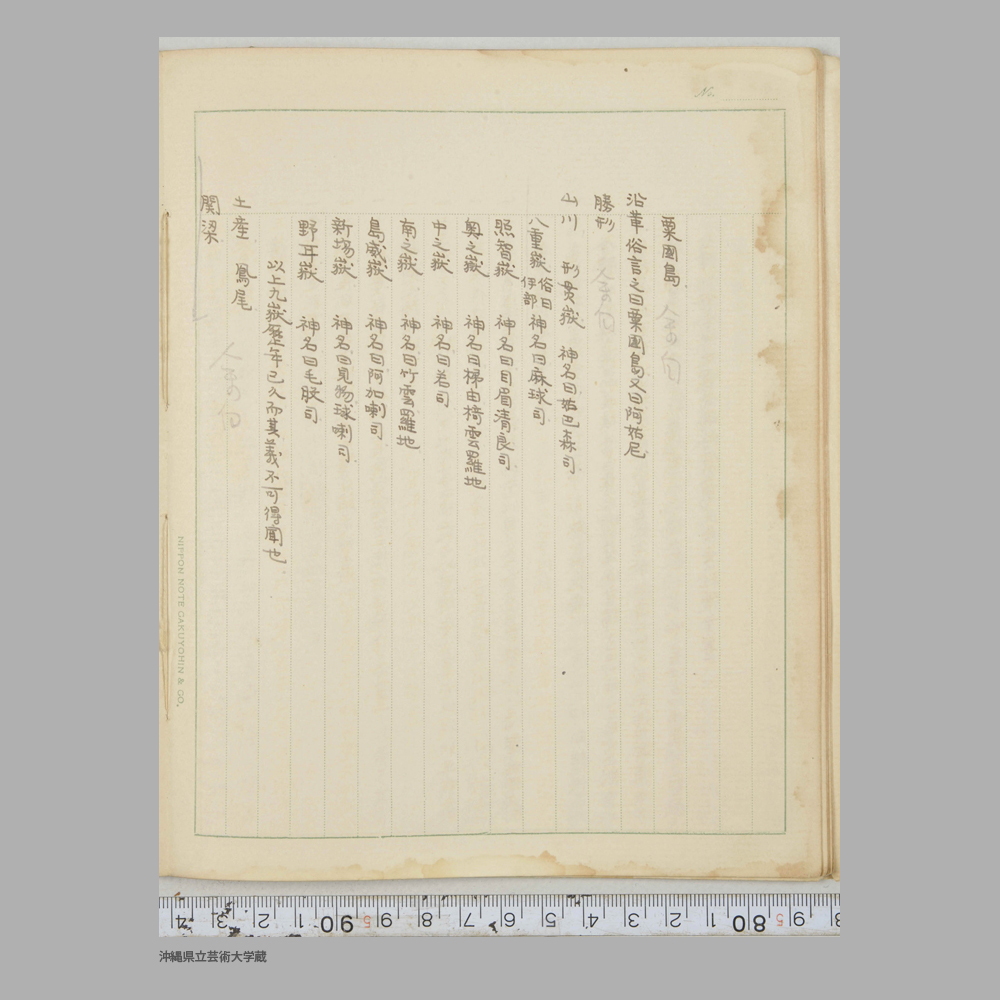 No.
粟國島
沿革 俗言之曰粟國島又曰阿姑尼
勝形
山川 形貫嶽 神名曰姑巴森司
八重嶽 俗曰伊部 神名曰麻球司
照智嶽 神名曰目眉清良司
奥之嶽 神名曰梯由椅雲羅地
中之嶽 神名曰若司
南之嶽 神名曰竹雲羅地
島威嶽 神名曰阿加喇司
新場嶽 神名曰見物球喇司
野耳嶽 神名曰毛肢司
以上九嶽歷年已久而其義不可得聞也
土産 鳳尾
関梁
NIPPON NOTE GAKUYOHIN & CO.
4 3 2 1 90 9 8 7 6 5 4 3 2 1 80 9 8
沖縄県立芸術大学蔵